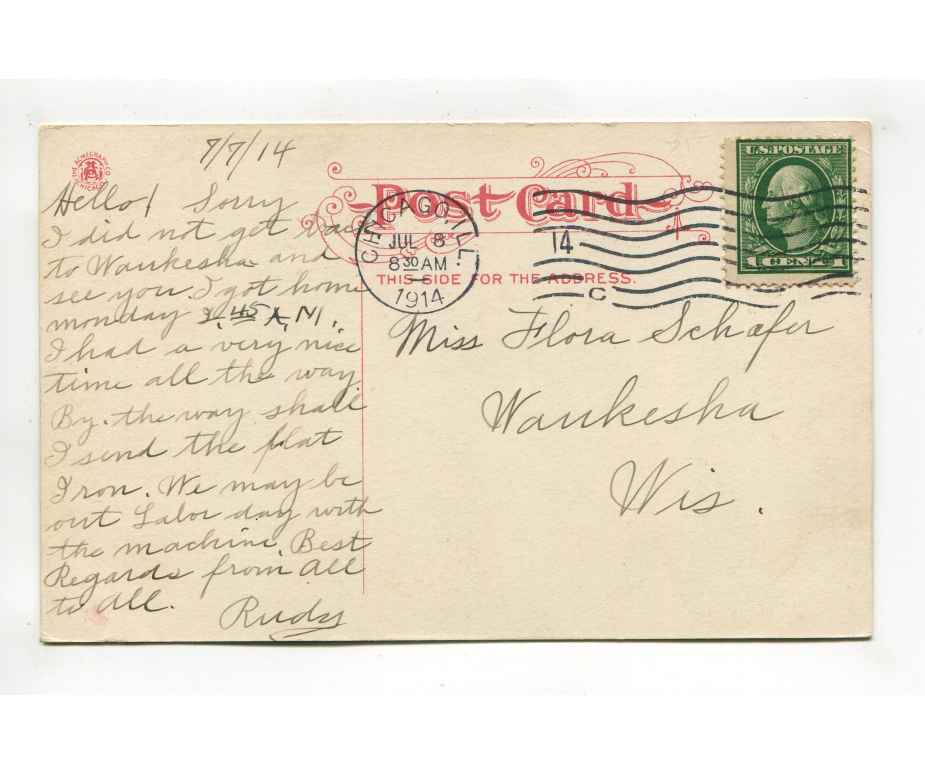 7/7/14
THE ACMEGRAPH CO.
CHICAGO
Post Card
THIS SIDE FOR THE ADDRESS.
U.S. POSTAGE
CHICAGO, ILL.
JUL 8
8 30 AM
1914
14
C
Hello! Sorry
I did not get
to Waukesha and
see you. I got home
monday 2.45 A.M.
I had a very nice
time all the way
By. the way shall
I send the flat
Iron. We may be
out Labor day with
the machine. Best
Regards from all
to all.
Rudy
Miss Flora Schafer
Waukesha
Wis.